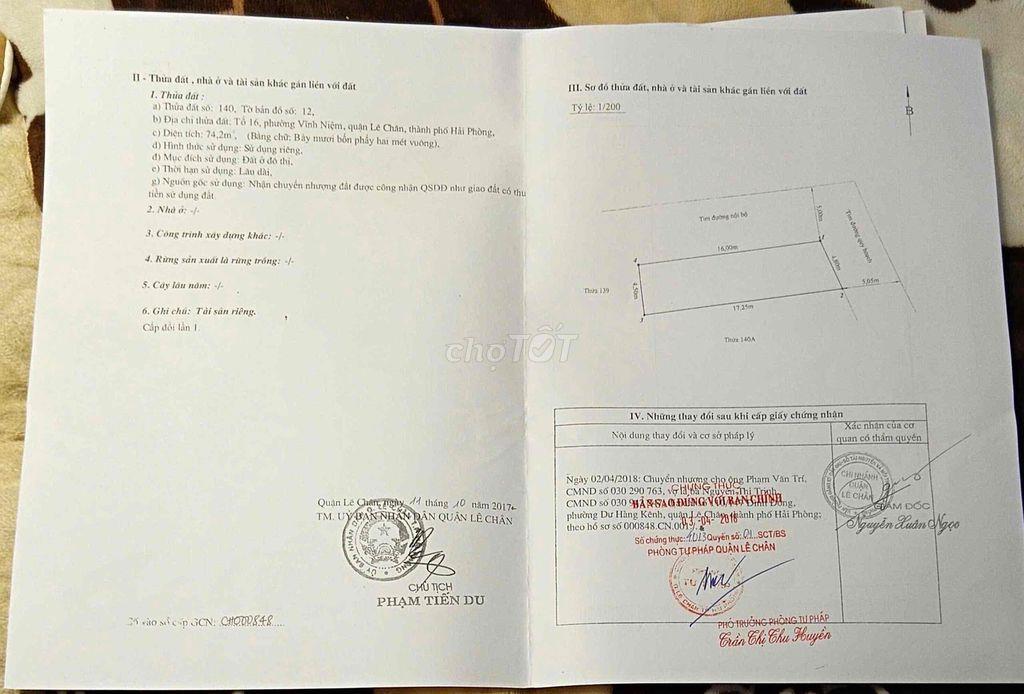 II - Thửa đất , nhà ở và tài sản khác gắn liền với đất
1. Thửa đất :
a) Thửa đất số: 140, Tờ bản đồ số: 12,
b) Địa chỉ thửa đất: Tổ 16, phường Vĩnh Niệm, quận Lê Chân, thành phố Hải Phòng,
c) Diện tích: 74,2m², (Bằng chữ: Bảy mươi bốn phẩy hai mét vuông),
d) Hình thức sử dụng: Sử dụng riêng,
đ) Mục đích sử dụng: Đất ở đô thị,
e) Thời hạn sử dụng: Lâu dài,
g) Nguồn gốc sử dụng: Nhận chuyển nhượng đất được công nhận QSDĐ như giao đất có thu
tiền sử dụng đất.
2. Nhà ở: -/-
3. Công trình xây dựng khác: -/-
4. Rừng sản xuất là rừng trồng: -/-
5. Cây lâu năm: -/-
6. Ghi chú: Tài sản riêng.
Cấp đổi lần 1.
Quận Lê Chân, ngày 11 tháng 10 năm 2017
TM. UỶ BAN NHÂN DÂN QUẬN LÊ CHÂN
CHỦ TỊCH
PHẠM TIẾN DU
Số vào sổ cấp GCN: CH000848
III. Sơ đồ thửa đất, nhà ở và tài sản khác gắn liền với đất
Tỷ lệ: 1/200
B
Tim đường nội bộ
5,00m
Tim đường quy hoạch
16,00m
1
4
4,80m
5,05m
Thửa 139
4,50m
2
17,25m
3
Thửa 140A
chợTỐT
IV. Những thay đổi sau khi cấp giấy chứng nhận
Nội dung thay đổi và cơ sở pháp lý
Xác nhận của cơ
quan có thẩm quyền
Ngày 02/04/2018: Chuyển nhượng cho ông Phạm Văn Trí,
CMND số 030 290 763, vợ là bà Nguyễn Thị Trinh,
CMND số 030
phường Dư Hàng Kênh, quận Lê Chân, thành phố Hải Phòng;
theo hồ sơ số 000848.CN.001
CHỨNG THỰC
BẢN SAO ĐÚNG VỚI BẢN CHÍNH
03-04-2018
Số chứng thực: 4013 Quyển số: 01 SCT/BS
PHÒNG TƯ PHÁP QUẬN LÊ CHÂN
PHÓ TRƯỞNG PHÒNG TƯ PHÁP
Trần Thị Thu Huyền
CHI NHÁNH
QUẬN
LÊ CHÂN
GIÁM ĐỐC
Nguyễn Xuân Ngọc